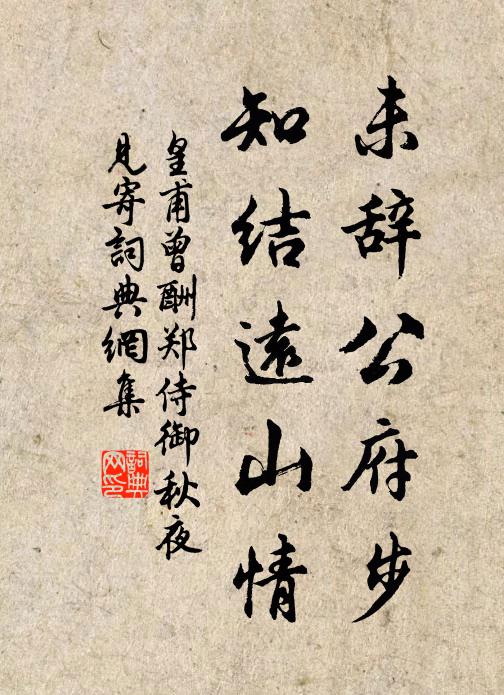 未辞公府步
知结遠山情
皇甫曾酬郑侍御秋夜
见寄詞典網集
詞典网印